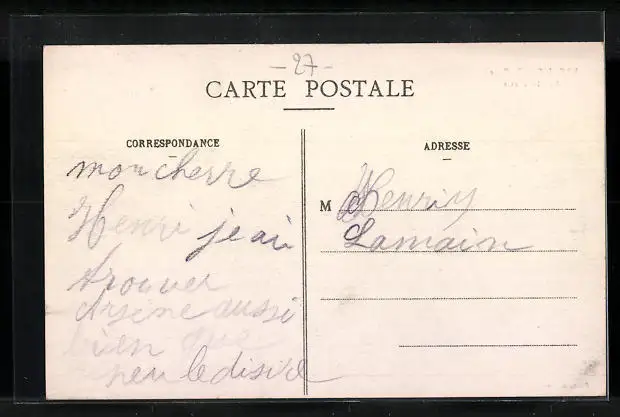 - 27 -
CARTE POSTALE
CORRESPONDANCE
mon cherre
Henri jeai
trouver
Arsene aussi
bien que
peu le disire
ADRESSE
M Henriy
Lamain